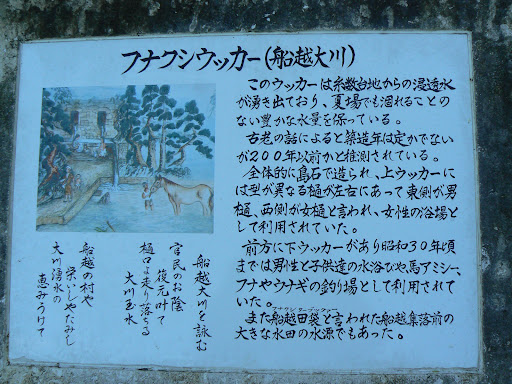 フナクシウッカー(船越大川)
このウッカーは糸数台地からの浸透水
が湧き出ており、夏場でも涸れることの
ない豊かな水量を保っている。
古老の話によると築造年は定かでない
が200年以前かと推測されている。
全体的に島石で造られ、上ウッカーに
は型が異なる樋が左右にあって東側が男
樋、西側が女樋と言われ、女性の浴場と
して利用されていた。
前方に下ウッカーがあり昭和30年頃
までは男性と子供達の水浴びや、馬アミシー、
フナやウナギの釣り場として利用されて
いた。
また船越田袋と言われた船越集落前の
大きな水田の水源でもあった。
船越大川を詠む
官民のお陰
復元叶て
樋口よ走り落てる
大川玉水
船越の村や
栄いしゃたみし
大川湧水の
恵みうけて